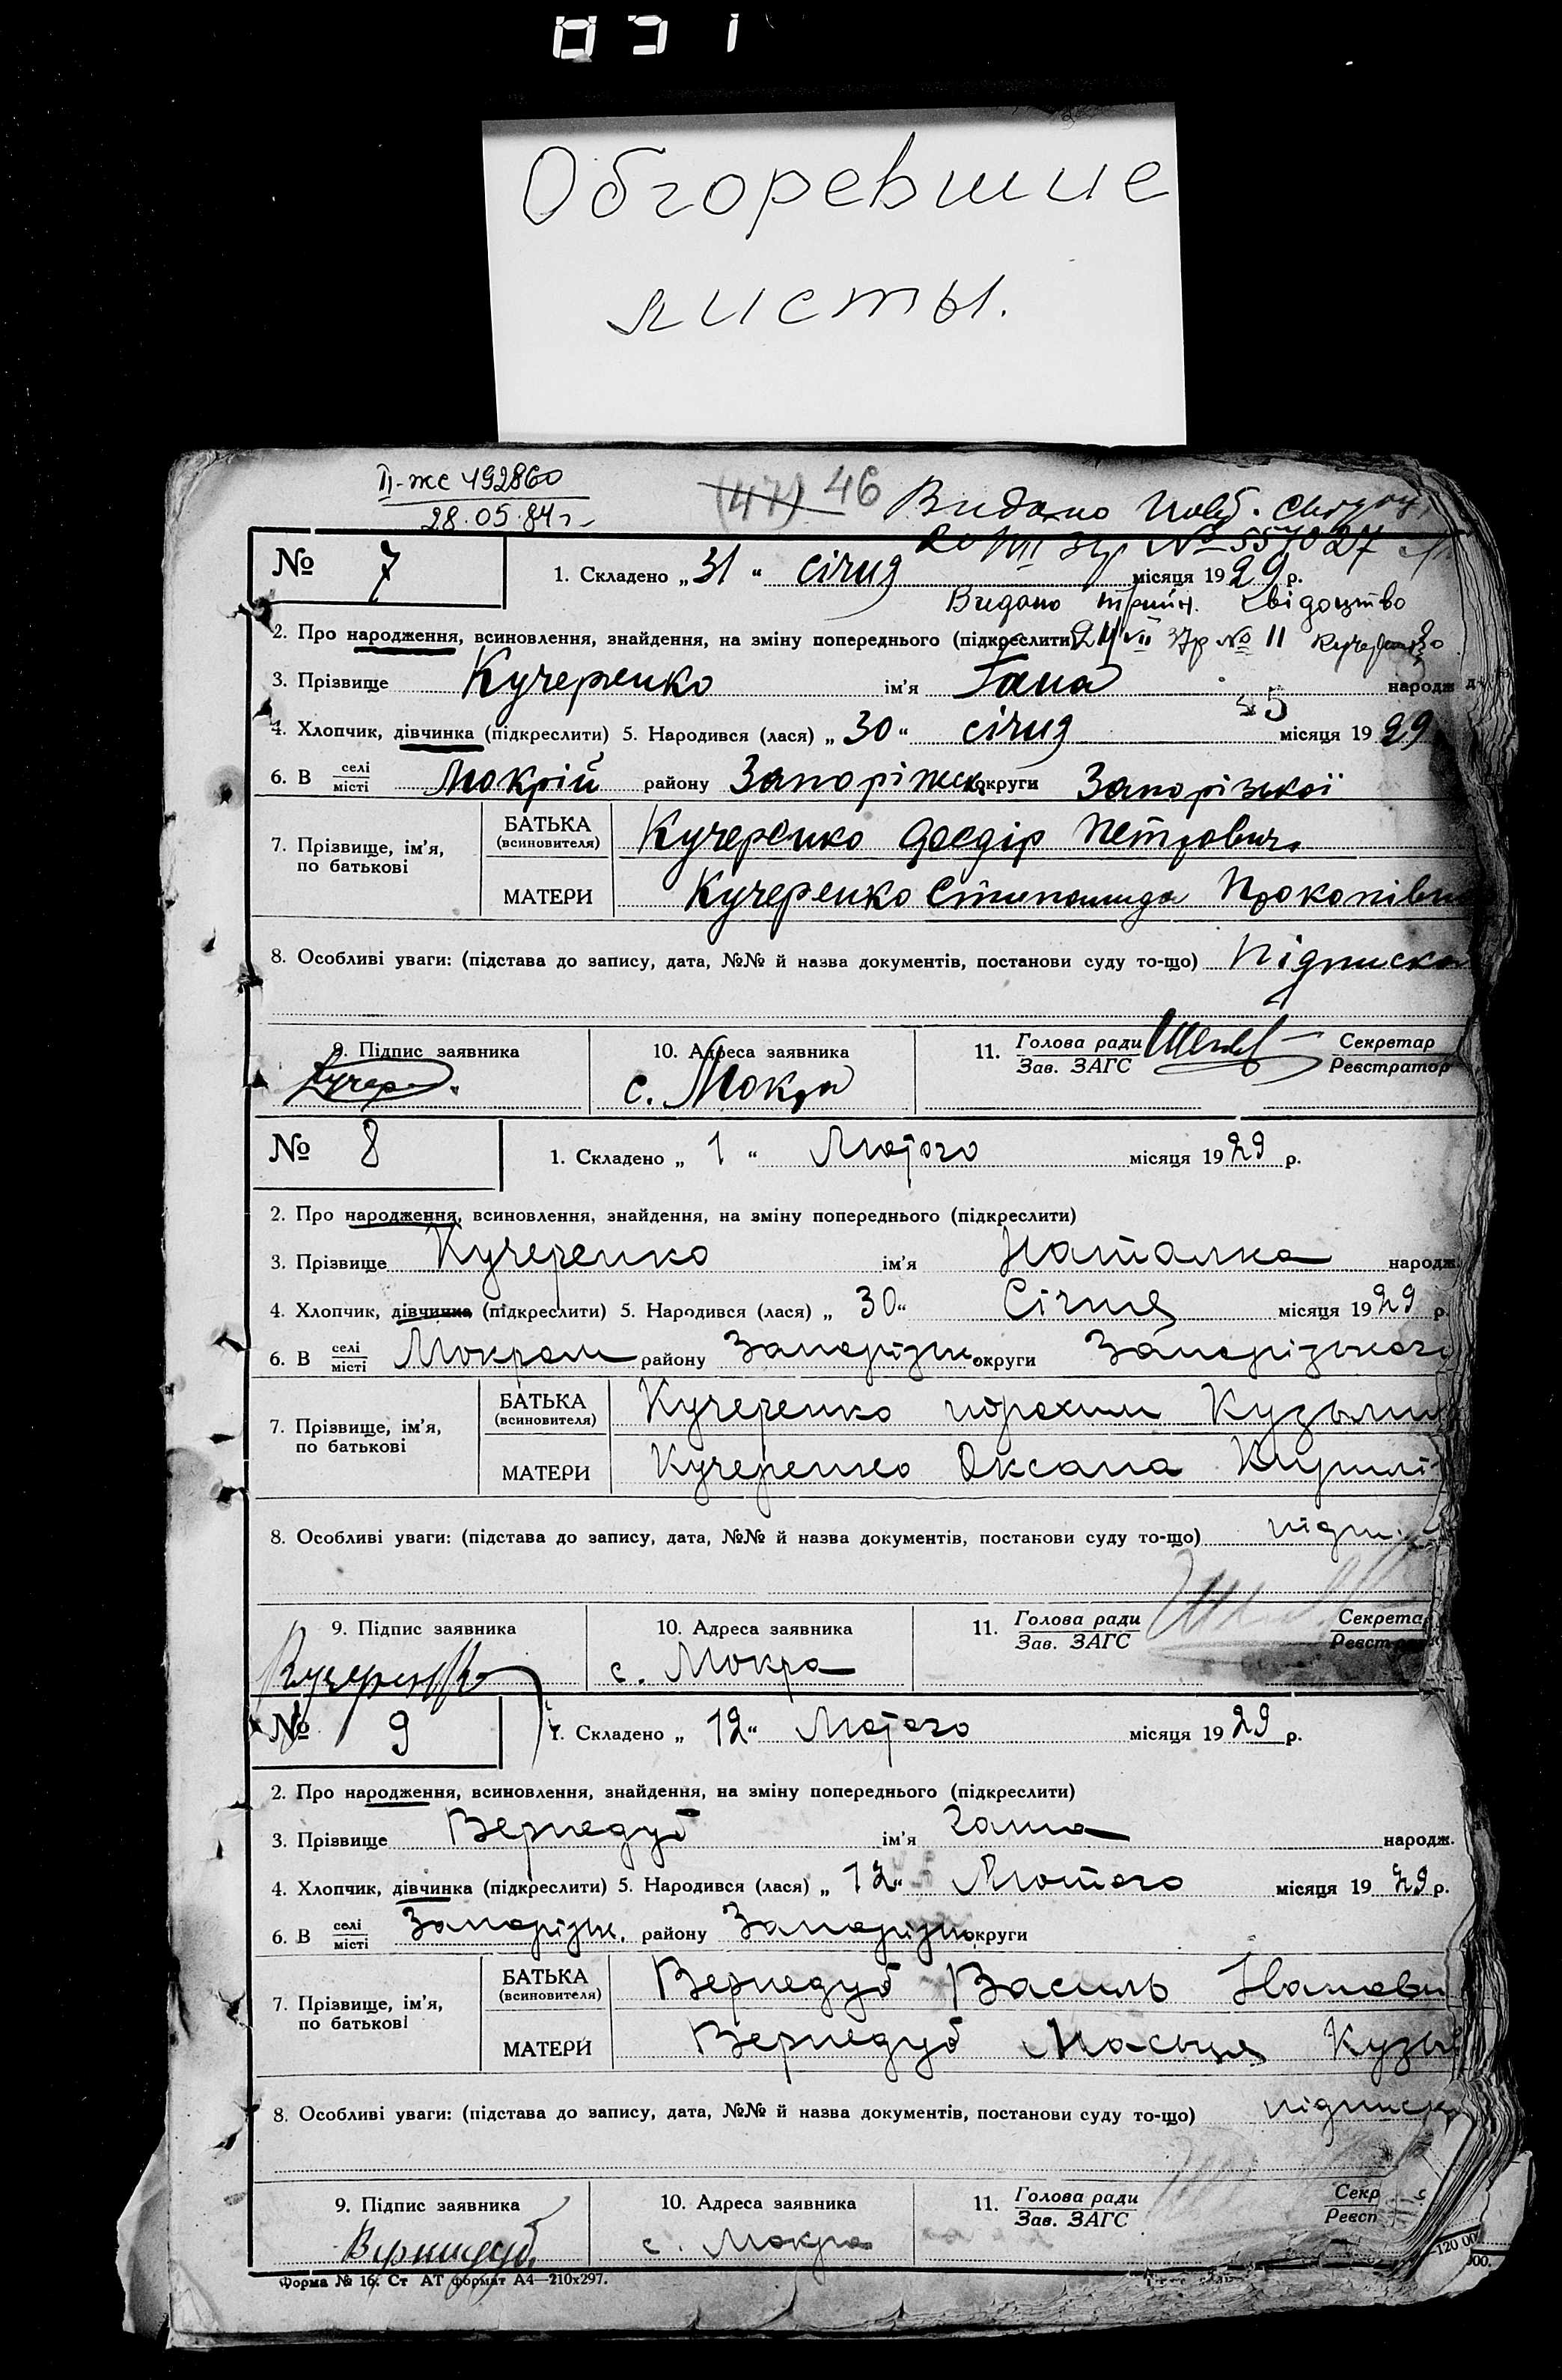 Обгоревшие
листы.
II-жс 492860
28.05.84 г.
(47) 46 Видано
№ 557027
№ 7 1. Складено „ 31 “ січня місяця 1929 р.
Видано свідоцтво
2. Про народження, всиновлення, знайдення, на зміну попереднього (підкреслити) 37р № 11
3. Прізвище Кучеренко ім'я Гана народж
4. Хлопчик, дівчинка (підкреслити) 5. Народився (лася) „ 30 “ січня місяця 1929
6. В селі місті Мокрій району Запоріжськ. округи Запорізької
7. Прізвище, ім'я, по батькові БАТЬКА (всиновителя) Кучеренко Федір Петрович
МАТЕРИ Кучеренко Прокопівна
8. Особливі уваги: (підстава до запису, дата, №№ й назва документів, постанови суду то-що) Підписка
9. Підпис заявника 10. Адреса заявника 11. Голова ради Зав. ЗАГС Секретар Реєстратор
Кучер с. Мокра
№ 8 1. Складено „ 1 “ Лютого місяця 1929 р.
2. Про народження, всиновлення, знайдення, на зміну попереднього (підкреслити)
3. Прізвище Кучеренко ім'я Наталка народж.
4. Хлопчик, дівчинка (підкреслити) 5. Народився (лася) „ 30 “ Січня місяця 1929 р.
6. В селі місті Мокром району Запорізьк. округи Запорізького
7. Прізвище, ім'я, по батькові БАТЬКА (всиновителя) Кучеренко Кузьми
МАТЕРИ Кучеренко Оксана Кирилі
8. Особливі уваги: (підстава до запису, дата, №№ й назва документів, постанови суду то-що) підпи.
9. Підпис заявника 10. Адреса заявника 11. Голова ради Зав. ЗАГС Секретар Реєстра
Кучеренко с. Мокра
№ 9 1. Складено „ 12 “ Лютого місяця 1929 р.
2. Про народження, всиновлення, знайдення, на зміну попереднього (підкреслити)
3. Прізвище Вернедуб ім'я Ганна народж.
4. Хлопчик, дівчинка (підкреслити) 5. Народився (лася) „ 12 “ Лютого місяця 1929 р.
6. В селі місті Запорізьк. району Запорізьк. округи
7. Прізвище, ім'я, по батькові БАТЬКА (всиновителя) Вернедуб Василь
МАТЕРИ Вернедуб Кузьм
8. Особливі уваги: (підстава до запису, дата, №№ й назва документів, постанови суду то-що) підписка
9. Підпис заявника 10. Адреса заявника 11. Голова ради Зав. ЗАГС Секр Реєсп
Вернидуб с. Мокра
Форма № 16. Ст АТ формат А4—210х297.
—120 00